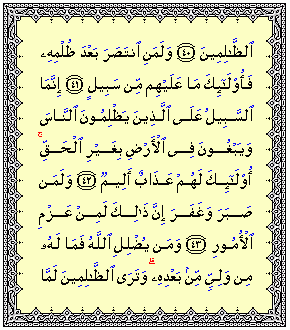 ٱلظَّٰلِمِينَ ۝٤٠ وَلَمَنِ ٱنتَصَرَ بَعْدَ ظُلْمِهِۦ
فَأُو۟لَٰٓئِكَ مَا عَلَيْهِم مِّن سَبِيلٍ ۝٤١ إِنَّمَا
ٱلسَّبِيلُ عَلَى ٱلَّذِينَ يَظْلِمُونَ ٱلنَّاسَ
وَيَبْغُونَ فِى ٱلْأَرْضِ بِغَيْرِ ٱلْحَقِّ ۚ
أُو۟لَٰٓئِكَ لَهُمْ عَذَابٌ أَلِيمٌ ۝٤٢ وَلَمَن
صَبَرَ وَغَفَرَ إِنَّ ذَٰلِكَ لَمِنْ عَزْمِ
ٱلْأُمُورِ ۝٤٣ وَمَن يُضْلِلِ ٱللَّهُ فَمَا لَهُۥ
مِن وَلِىٍّ مِّنۢ بَعْدِهِۦ ۗ وَتَرَى ٱلظَّٰلِمِينَ لَمَّا